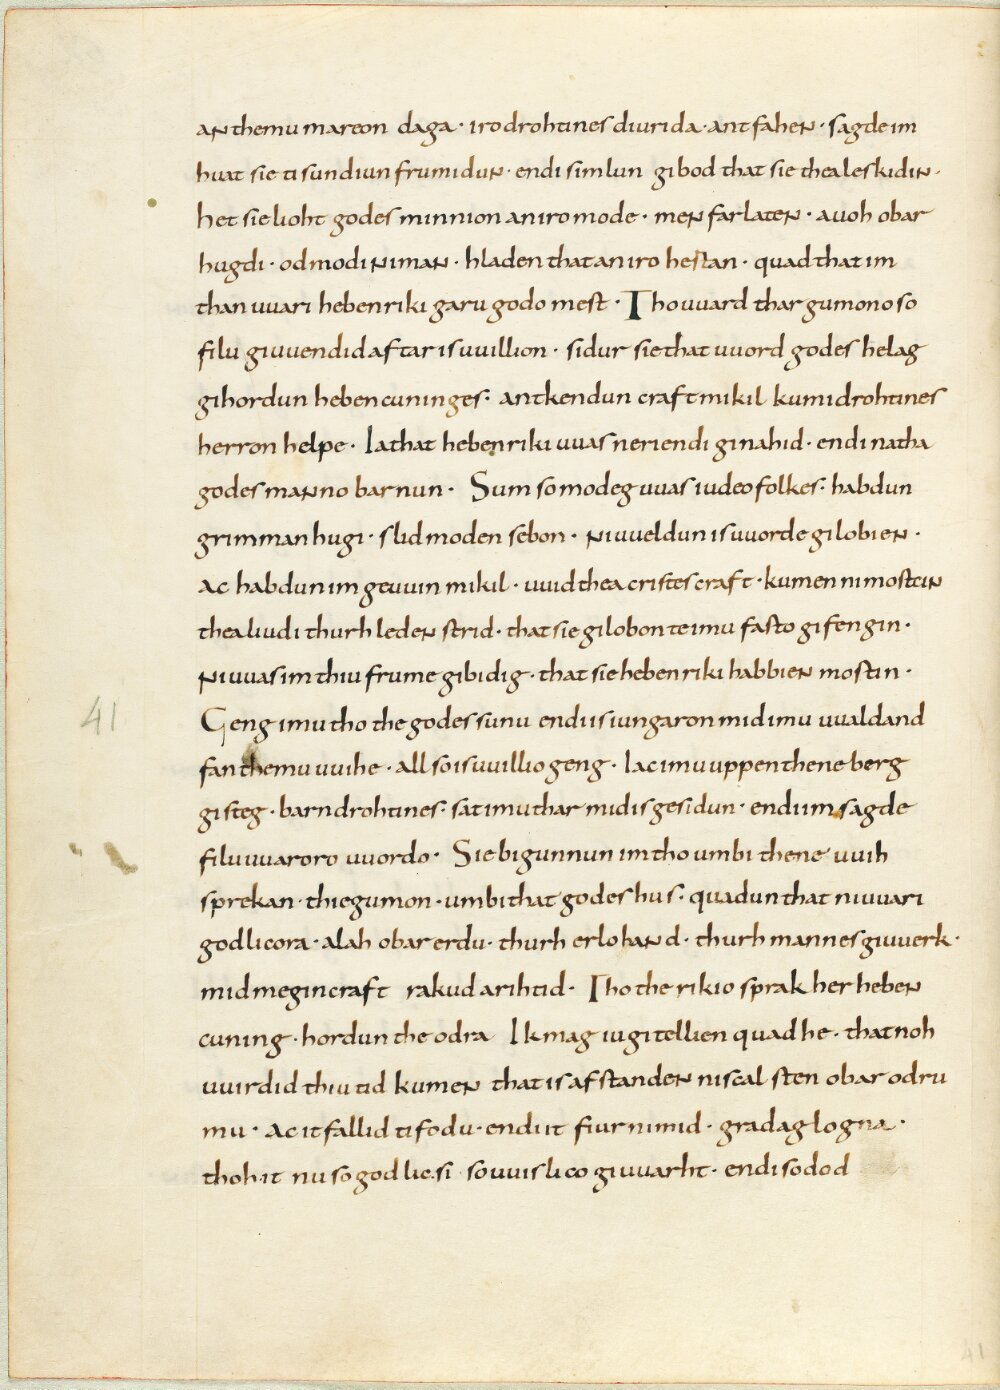 an themu mareon daga · iro drohtines diurida · antfahen · sagde im
huat sie ti sundiun frumidun · endi simlun gibod that sie thea leskidin ·
het sie lioht godes minnion an iro mode · men farlaten · auoh obar
hugdi · odmodi niman · hladen that an iro hertan · quad that im
than uuari hebenriki garu godo mest · Tho uuard thar gumono so
filu giuuendid aftar is uuillion · sidur sie that uuord godes helag
gihordun hebencuninges · antkendun craft mikil kumi drohtines
herron helpe · Ia that hebenriki uuas neriendi ginahid · endi natha
godes manno barnun · Sum so modeg uuas iudeo folkes · habdun
grimman hugi · slidmoden sebon · ni uueldun is uuorde gilobien ·
ac habdun im geuuin mikil · uuid thea cristes craft · kumen ni mostun
thea liudi thurh leden strid · that sie gilobon te imu fasto gifengin ·
Ni uuas im thiu frume gibidig · that sie hebenriki habbien mostin ·
Geng imu tho the godes sunu endi is iungaron mid imu uualdand
fan themu uuihe · all so is uuillio geng · Iac imu uppen thene berg
gisteg · barn drohtines · sat imu thar mid is gesidun · endi im sagde
filu uuaroro uuordo · Sie bigunnun im tho umbi thene uuih
sprekan · thie gumon · umbi that godes hus · quadun that ni uuari
godlicora · alah obar erdu · thurh erlo hand · thurh mannes giuuerk ·
mid megincraft rakud arihtid · Tho the rikio sprak her heben
cuning · hordun the odra Ik mag iu gitellien quad he · that noh
uuirdid thiu tid kumen that is afstanden ni scal sten obar odru
mu · Ac it fallid ti fodu · endi it fiur nimid · gradag logna ·
thoh it nu so godlic si so uuislico giuuarht · endi so dod
41
41